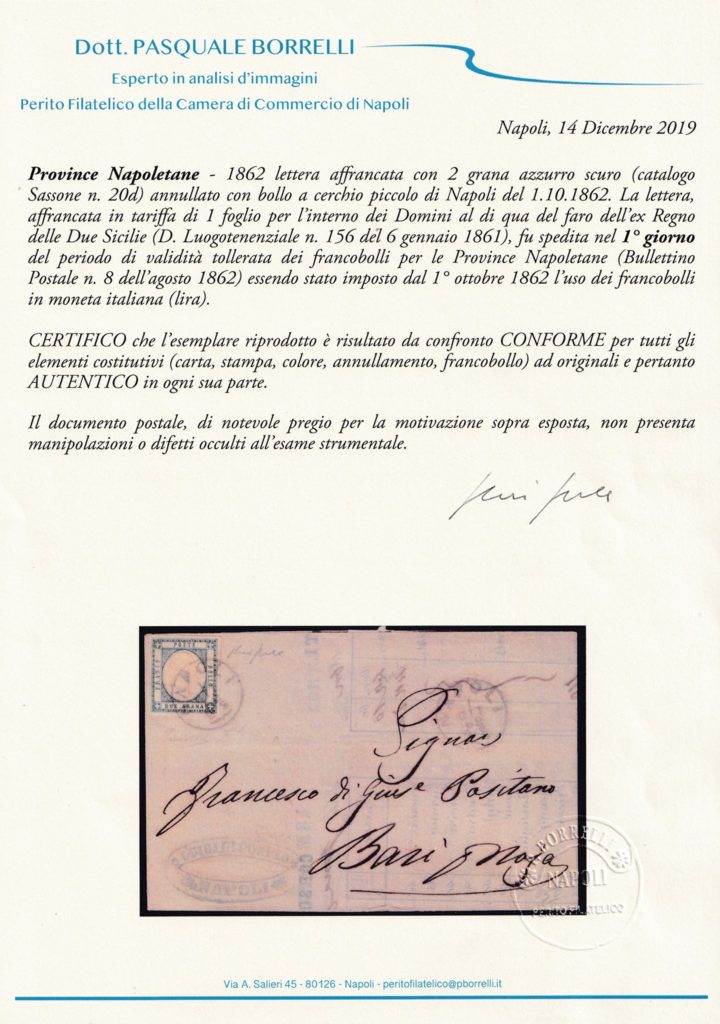 Dott. PASQUALE BORRELLI
Esperto in analisi d'immagini
Perito Filatelico della Camera di Commercio di Napoli
Napoli, 14 Dicembre 2019
Province Napoletane - 1862 lettera affrancata con 2 grana azzurro scuro (catalogo
Sassone n. 20d) annullato con bollo a cerchio piccolo di Napoli del 1.10.1862. La lettera,
affrancata in tariffa di 1 foglio per l'interno dei Domini al di qua del faro dell'ex Regno
delle Due Sicilie (D. Luogotenenziale n. 156 del 6 gennaio 1861), fu spedita nel 1° giorno
del periodo di validità tollerata dei francobolli per le Province Napoletane (Bullettino
Postale n. 8 dell'agosto 1862) essendo stato imposto dal 1° ottobre 1862 l'uso dei francobolli
in moneta italiana (lira).
CERTIFICO che l'esemplare riprodotto è risultato da confronto CONFORME per tutti gli
elementi costitutivi (carta, stampa, colore, annullamento, francobollo) ad originali e pertanto
AUTENTICO in ogni sua parte.
Il documento postale, di notevole pregio per la motivazione sopra esposta, non presenta
manipolazioni o difetti occulti all'esame strumentale.
POSTE
FRANCO
BOLLO
DUE GRANA
Signor
Francesco di Gius.e Positano
Bari
NAPOLI
BORRELLI
NAPOLI
PERITO FILATELICO
Via A. Salieri 45 - 80126 - Napoli - peritofilatelico@pborrelli.it